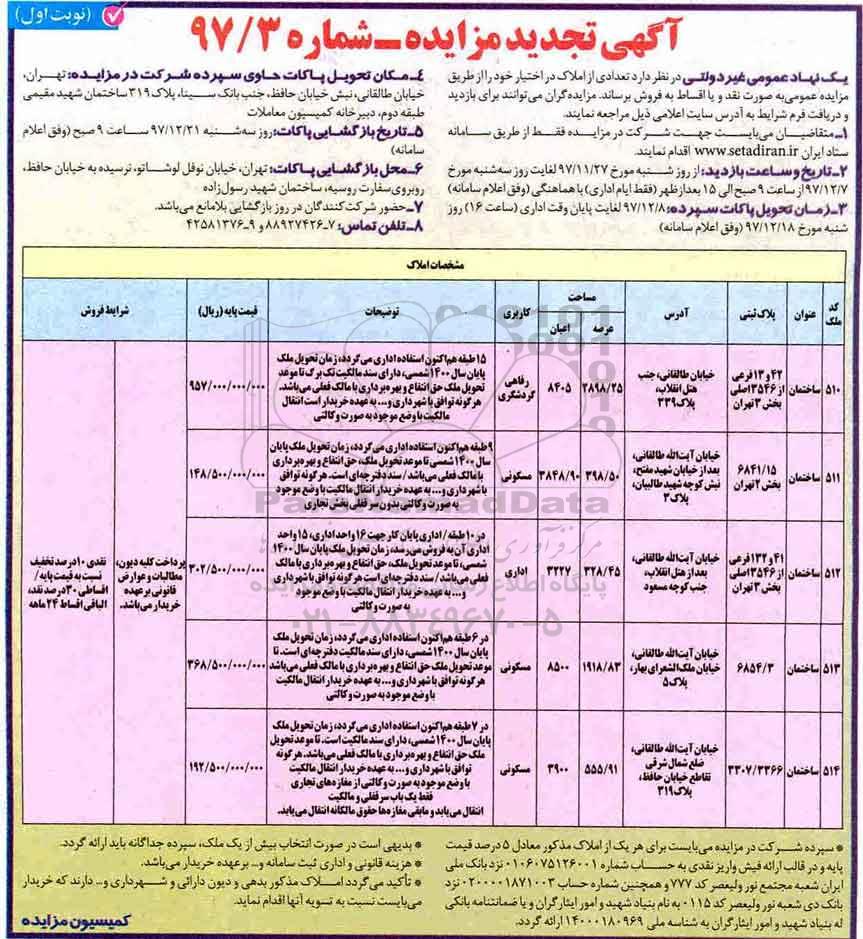 (نوبت اول)
آگهی تجدید مزایده - شماره ۹۷/۳
یک نهاد عمومی غیر دولتی در نظر دارد تعدادی از املاک در اختیار خود را از طریق
مزایده عمومی به صورت نقد و یا اقساط به فروش برساند. مزایده گران می‌توانند برای بازدید
و دریافت فرم شرایط به آدرس سایت اعلامی ذیل مراجعه نمایند.
۱- متقاضیان می‌بایست جهت شرکت در مزایده فقط از طریق سامانه
ستاد ایران www.setadiran.ir اقدام نمایند.
۲- تاریخ و ساعت بازدید: از روز شنبه مورخ ۹۷/۱۱/۲۷ لغایت روز سه‌شنبه مورخ
۹۷/۱۲/۷ از ساعت ۹ صبح الی ۱۵ بعدازظهر (فقط ایام اداری) با هماهنگی (وفق اعلام سامانه)
۳- زمان تحویل پاکات سپرده: ۹۷/۱۲/۸ لغایت پایان وقت اداری (ساعت ۱۶) روز
شنبه مورخ ۹۷/۱۲/۱۸ (وفق اعلام سامانه)
۴- مکان تحویل پاکات حاوی سپرده شرکت در مزایده: تهران،
خیابان طالقانی، نبش خیابان حافظ، جنب بانک سینا، پلاک ۳۱۹ ساختمان شهید مقیمی
طبقه دوم، دبیرخانه کمیسیون معاملات
۵- تاریخ بازگشایی پاکات: روز سه‌شنبه ۹۷/۱۲/۲۱ ساعت ۹ صبح (وفق اعلام
سامانه)
۶- محل بازگشایی پاکات: تهران، خیابان نوفل لوشاتو، نرسیده به خیابان حافظ،
روبروی سفارت روسیه، ساختمان شهید رسول‌زاده
۷- حضور شرکت‌کنندگان در روز بازگشایی بلامانع می‌باشد.
۸- تلفن تماس: ۷-۸۸۹۲۷۴۲۶ و ۹-۴۲۵۸۱۳۷۶
مشخصات املاک
کد ملک | عنوان | پلاک ثبتی | آدرس | مساحت | کاربری | توضیحات | قیمت پایه (ریال) | شرایط فروش
عرصه | اعیان
۵۱۰ | ساختمان | ۴۲ و ۱۳ فرعی از ۳۵۴۶ اصلی بخش ۳ تهران | خیابان طالقانی، جنب هتل انقلاب، پلاک ۳۳۹ | ۲۸۹۸/۲۵ | ۸۴۰۵ | رفاهی گردشگری | ۹۵۷/۰۰۰/۰۰۰/۰۰۰
۱۵ طبقه هم‌اکنون استفاده اداری می‌گردد، زمان تحویل ملک
پایان سال ۱۴۰۰ شمسی، دارای سند مالکیت تک برگ تا موعد
تحویل ملک حق انتفاع و بهره‌برداری با مالک فعلی می‌باشد.
هرگونه توافق با شهرداری و... به عهده خریدار است انتقال
مالکیت با وضع موجود به صورت وکالتی
۵۱۱ | ساختمان | ۶۸۴۱/۱۵ بخش ۲ تهران | خیابان آیت‌الله طالقانی، بعد از خیابان شهید مفتح، نبش کوچه شهید طالبیان، پلاک ۲ | ۳۹۸/۵۰ | ۳۸۴۸/۹۰ | مسکونی | ۱۴۸/۵۰۰/۰۰۰/۰۰۰
۹ طبقه هم‌اکنون استفاده اداری می‌گردد، زمان تحویل ملک پایان
سال ۱۴۰۰ شمسی تا موعد تحویل ملک، حق انتفاع و بهره‌برداری
با مالک فعلی می‌باشد/ سند دفترچه‌ای است. هرگونه توافق
با شهرداری و... به عهده خریدار انتقال مالکیت با وضع موجود
به صورت وکالتی بدون سرقفلی بخش تجاری
۵۱۲ | ساختمان | ۴۱ و ۱۳۲ فرعی از ۳۵۴۶ اصلی بخش ۳ تهران | خیابان آیت‌الله طالقانی، بعد از هتل انقلاب، جنب کوچه مسعود | ۳۲۸/۴۵ | ۳۲۲۷ | اداری | ۳۰۲/۵۰۰/۰۰۰/۰۰۰
در ۱۰ طبقه / اداری پایان کار جهت ۱۶ واحد اداری، ۱۵ واحد
اداری آن به فروش می‌رسد، زمان تحویل ملک پایان سال ۱۴۰۰
شمسی، تا موعد تحویل ملک، حق انتفاع و بهره‌برداری با مالک
فعلی می‌باشد/ سند دفترچه‌ای است هرگونه توافق با شهرداری
و... به عهده خریدار انتقال مالکیت با وضع موجود
به صورت وکالتی
۵۱۳ | ساختمان | ۶۸۵۴/۳ | خیابان آیت‌الله طالقانی، خیابان ملک‌الشعرای بهار، پلاک ۵ | ۱۹۱۸/۸۳ | ۸۵۰۰ | مسکونی | ۳۶۸/۵۰۰/۰۰۰/۰۰۰
در ۶ طبقه هم‌اکنون استفاده اداری می‌گردد، زمان تحویل ملک
پایان سال ۱۴۰۰ شمسی، دارای سند مالکیت دفترچه‌ای است. تا
موعد تحویل ملک حق انتفاع و بهره‌برداری با مالک فعلی می‌باشد
هرگونه توافق با شهرداری و... به عهده خریدار انتقال مالکیت
با وضع موجود به صورت وکالتی
۵۱۴ | ساختمان | ۳۳۰۷/۳۳۶۶ | خیابان آیت‌الله طالقانی، ضلع شمال شرقی تقاطع خیابان حافظ، پلاک ۳۱۹ | ۵۵۵/۹۱ | ۳۹۰۰ | مسکونی | ۱۹۲/۵۰۰/۰۰۰/۰۰۰
در ۷ طبقه هم‌اکنون استفاده اداری می‌گردد، زمان تحویل ملک
پایان سال ۱۴۰۰ شمسی، دارای سند مالکیت است. تا موعد تحویل
ملک حق انتفاع و بهره‌برداری با مالک فعلی می‌باشد. هرگونه
توافق با شهرداری و... به عهده خریدار انتقال مالکیت
با وضع موجود به صورت وکالتی از مغازه‌های تجاری
فقط یک باب سرقفلی و مالکیت
انتقال می‌یابد و مابقی مغازه‌ها حقوق مالکانه انتقال می‌یابد.
پرداخت کلیه دیون،
مطالبات و عوارض
قانونی بر عهده
خریدار می‌باشد.
نقدی ۱۰ درصد تخفیف
نسبت به قیمت پایه/
اقساطی ۳۰ درصد نقد،
الباقی اقساط ۲۴ ماهه
ParsNamadData
پایگاه اطلاع رسانی
۰۲۱-۸۸۳۴۹۶۷۰-۵
* سپرده شرکت در مزایده می‌بایست برای هر یک از املاک مذکور معادل ۵ درصد قیمت
پایه و در قالب ارائه فیش واریز نقدی به حساب شماره ۰۱۰۶۰۷۵۱۲۶۰۰۱ نزد بانک ملی
ایران شعبه مجتمع نور ولیعصر کد ۷۷۷ و همچنین شماره حساب ۰۲۰۰۰۰۱۸۷۱۰۰۳ نزد
بانک دی شعبه نور ولیعصر کد ۰۱۱۵ به نام بنیاد شهید و امور ایثارگران و یا ضمانتنامه بانکی
له بنیاد شهید و امور ایثارگران به شناسه ملی ۱۴۰۰۰۱۸۰۹۶۹ ارائه گردد.
* بدیهی است در صورت انتخاب بیش از یک ملک، سپرده جداگانه باید ارائه گردد.
* هزینه قانونی و اداری ثبت سامانه و... بر عهده خریدار می‌باشد.
* تأکید می‌گردد املاک مذکور بدهی و دیون دارائی و شهرداری و.. دارند که خریدار
می‌بایست نسبت به تسویه آنها اقدام نماید.
کمیسیون مزایده